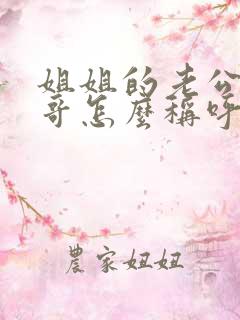 姐姐的老公
哥怎麼稱呼
農家妞妞